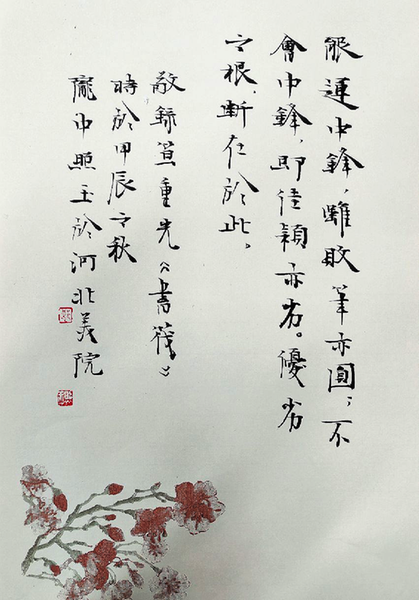 能運中鋒，雖敗筆亦圓；不
會中鋒，即佳穎亦劣。優劣
之根，斷在於此。
敬錄笪重光《書筏》
時於甲辰之秋
龐中照玉於河北美院